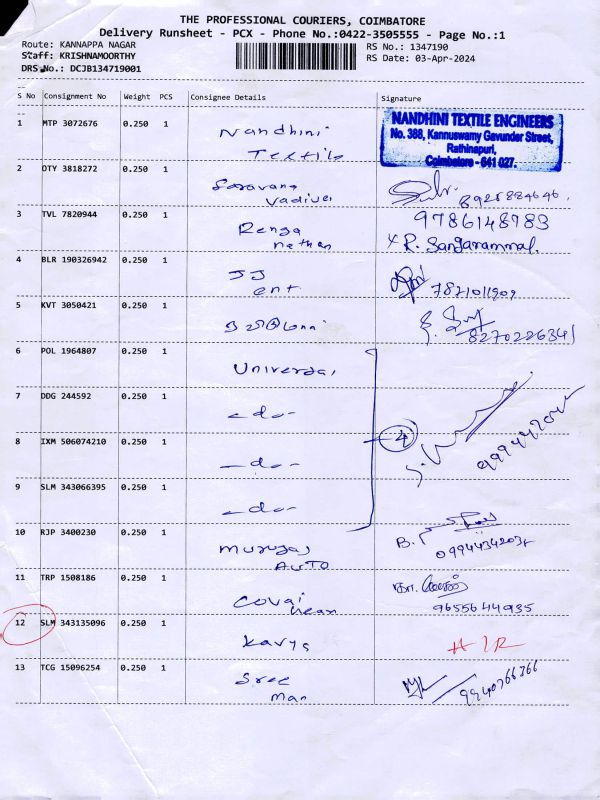 THE PROFESSIONAL COURIERS, COIMBATORE
Delivery Runsheet - PCX - Phone No.:0422-3505555 - Page No.:1
Route: KANNAPPA NAGAR
Staff: KRISHNAMOORTHY
DRS No.: DCJB134719001
RS No.: 1347190
RS Date: 03-Apr-2024
S No Consignment No Weight PCS Consignee Details Signature
1 MTP 3072676 0.250 1 Nandhini
Textile
NANDHINI TEXTILE ENGINEERS
No. 388, Kannuswamy Gavunder Street,
Rathinapuri,
Coimbatore - 641 027.
2 DTY 3818272 0.250 1 Saravana
Vadivel
8925884646.
3 TVL 7820944 0.250 1 Renga
nathan
9786148983
R. Sangarammal.
4 BLR 190326942 0.250 1 JJ
ent
7821011909
5 KVT 3050421 0.250 1
8270226341
6 POL 1964807 0.250 1 Universal
7 DDG 244592 0.250 1 -do-
8 IXM 506074210 0.250 1 -do-
4
9 SLM 343066395 0.250 1 -do-
10 RJP 3400230 0.250 1 Murugas
AUTO
B.
11 TRP 1508186 0.250 1 Covai
9655644935
12 SLM 343135096 0.250 1 Kavya
13 TCG 15096254 0.250 1 Sree
man
9940766366